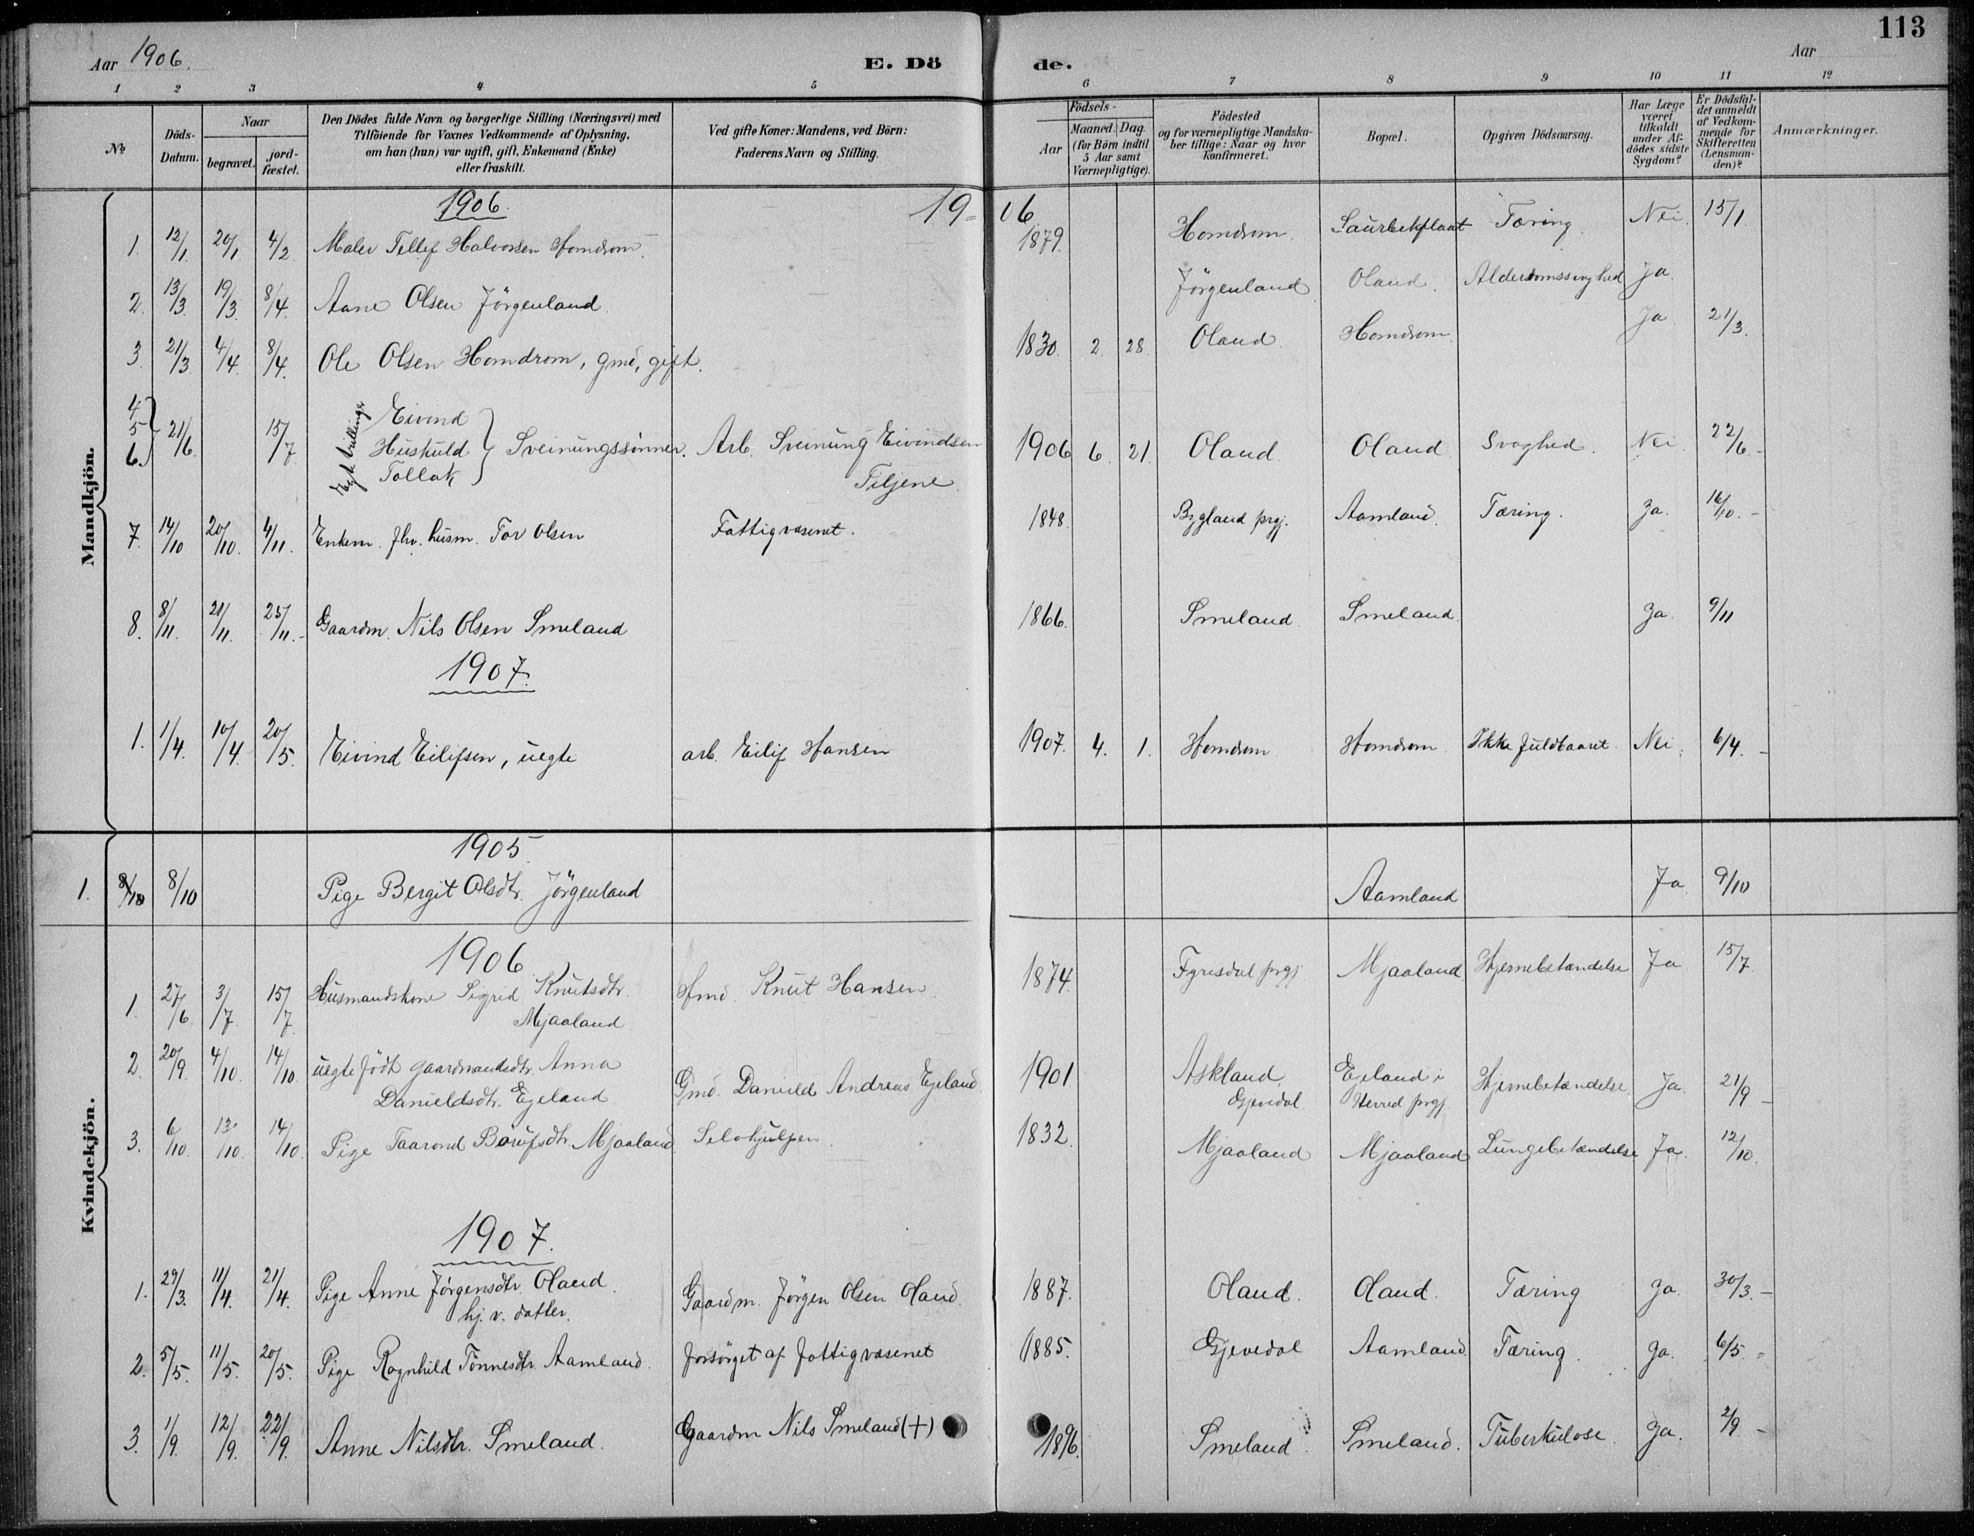 113
Aar 1906. E. Dö de. Aar
1 2 3 4 5 6 7 8 9 10 11 12
№ Döds-Datum. Naar begravet. jordfæstet. Den Dödes fulde Navn og borgerlige Stilling (Næringsvei) med Tilföiende for Voxnes Vedkommende af Oplysning, om han (hun) var ugift, gift, Enkemand (Enke) eller fraskilt. Ved gifte Koner: Mandens, ved Börn: Faderens Navn og Stilling. Födsels- Aar Maaned. Dag. (for Börn indtil 5 Aar samt Værnepligtige). Födested og for værnepligtige Mandskaber tillige: Naar og hvor konfirmeret. Bopæl. Opgiven Dödsaarsag. Har Læge været tilkaldt under Afdödes sidste Sygdom? Er Dödsfaldet anmeldt af Vedkommende for Skifteretten (Lensmanden)? Anmærkninger.
Mandkjön.
1906. 1906.
1. 12/1 20/1 4/2 Maler Tellef Halvorsen Homdrom 1879. Homdrom Saurbekflaat Tæring. Nei 15/1
2. 13/3 19/3. 8/4. Aane Olsen Jörgenland Jörgenland Oland. Alderdomssvaghed Ja
3. 21/3 4/4. 8/4. Ole Olsen Homdrom, gmd, gift. 1830. 2. 28. Oland Homdrom. Ja 21/3.
4 5 6. 21/6 15/7 Egte trillinger Eivind
Huskuld } Sveinungssönner. Arb. Sveinung Eivindsen 1906 6. 21. Oland Oland Svaghed. Nei 22/6.-
Tollak Tiljene.
7. 14/10 20/10. 4/11. Enkem. fhv. husm. Tor Olsen Fattigvæsenet. 1848. Bygland prgj. Aamland. Tæring. Ja. 16/10.-
8. 8/11. 21/11. 25/11.- Gaardm. Nils Olsen Smeland 1866. Smeland Smeland Ja. 9/11
1907.
1. 1/4. 10/4. 20/5. Eivind Eilefsen, uegte arb. Eilif Hansen 1907. 4. 1. Homdrom Homdrom. Ikke fuldbaaret. Nei. 6/4.-
Kvindekjön.
1905
1. 8/10 8/10 Pige Bergit Olsdtr. Jörgenland Aamland Ja. 9/10
1906
1. 27/6 3/7 15/7 Husmandskone Sigrid Knutsdtr. Hmd. Knut Hansen. 1874. Fyresdal prgj Mjaaland Hjernebetændelse Ja 15/7
Mjaaland
2. 20/9. 4/10. 14/10 uegte födt gaardmandsdtr. Anna Gmd. Danield Andreas Egeland 1901 Askland, Egeland i Hjernebetændelse Ja. 21/9-
Danieldsdtr. Egeland. Gjevedal Herred prgj
3. 6/10. 13/10. 14/10. Pige Taarond Borufsdtr. Mjaaland Selvhjulpen. 1832. Mjaaland Mjaaland Lungebetændelse Ja. 12/10.
1907.
1. 29/3. 11/4. 21/4. Pige Anne Jörgensdtr. Oland. Gaardm. Jörgen Olsen Oland. 1887. Oland. Oland. Tæring Ja. 30/3.-
hj. v. datter.
2. 5/5. 11/5. 20/5. Pige Ragnhild Tönnesdtr. Aamland. forsörget af fattigvæsenet 1885. Gjevedal Aamland Tæring. Ja. 6/5.
3. 1/9. 12/9. 22/9. Anne Nilsdtr. Smeland. Gaardm Nils Smeland (+) 1896. Smeland Smeland. Tuberkulose. Ja. 2/9.-